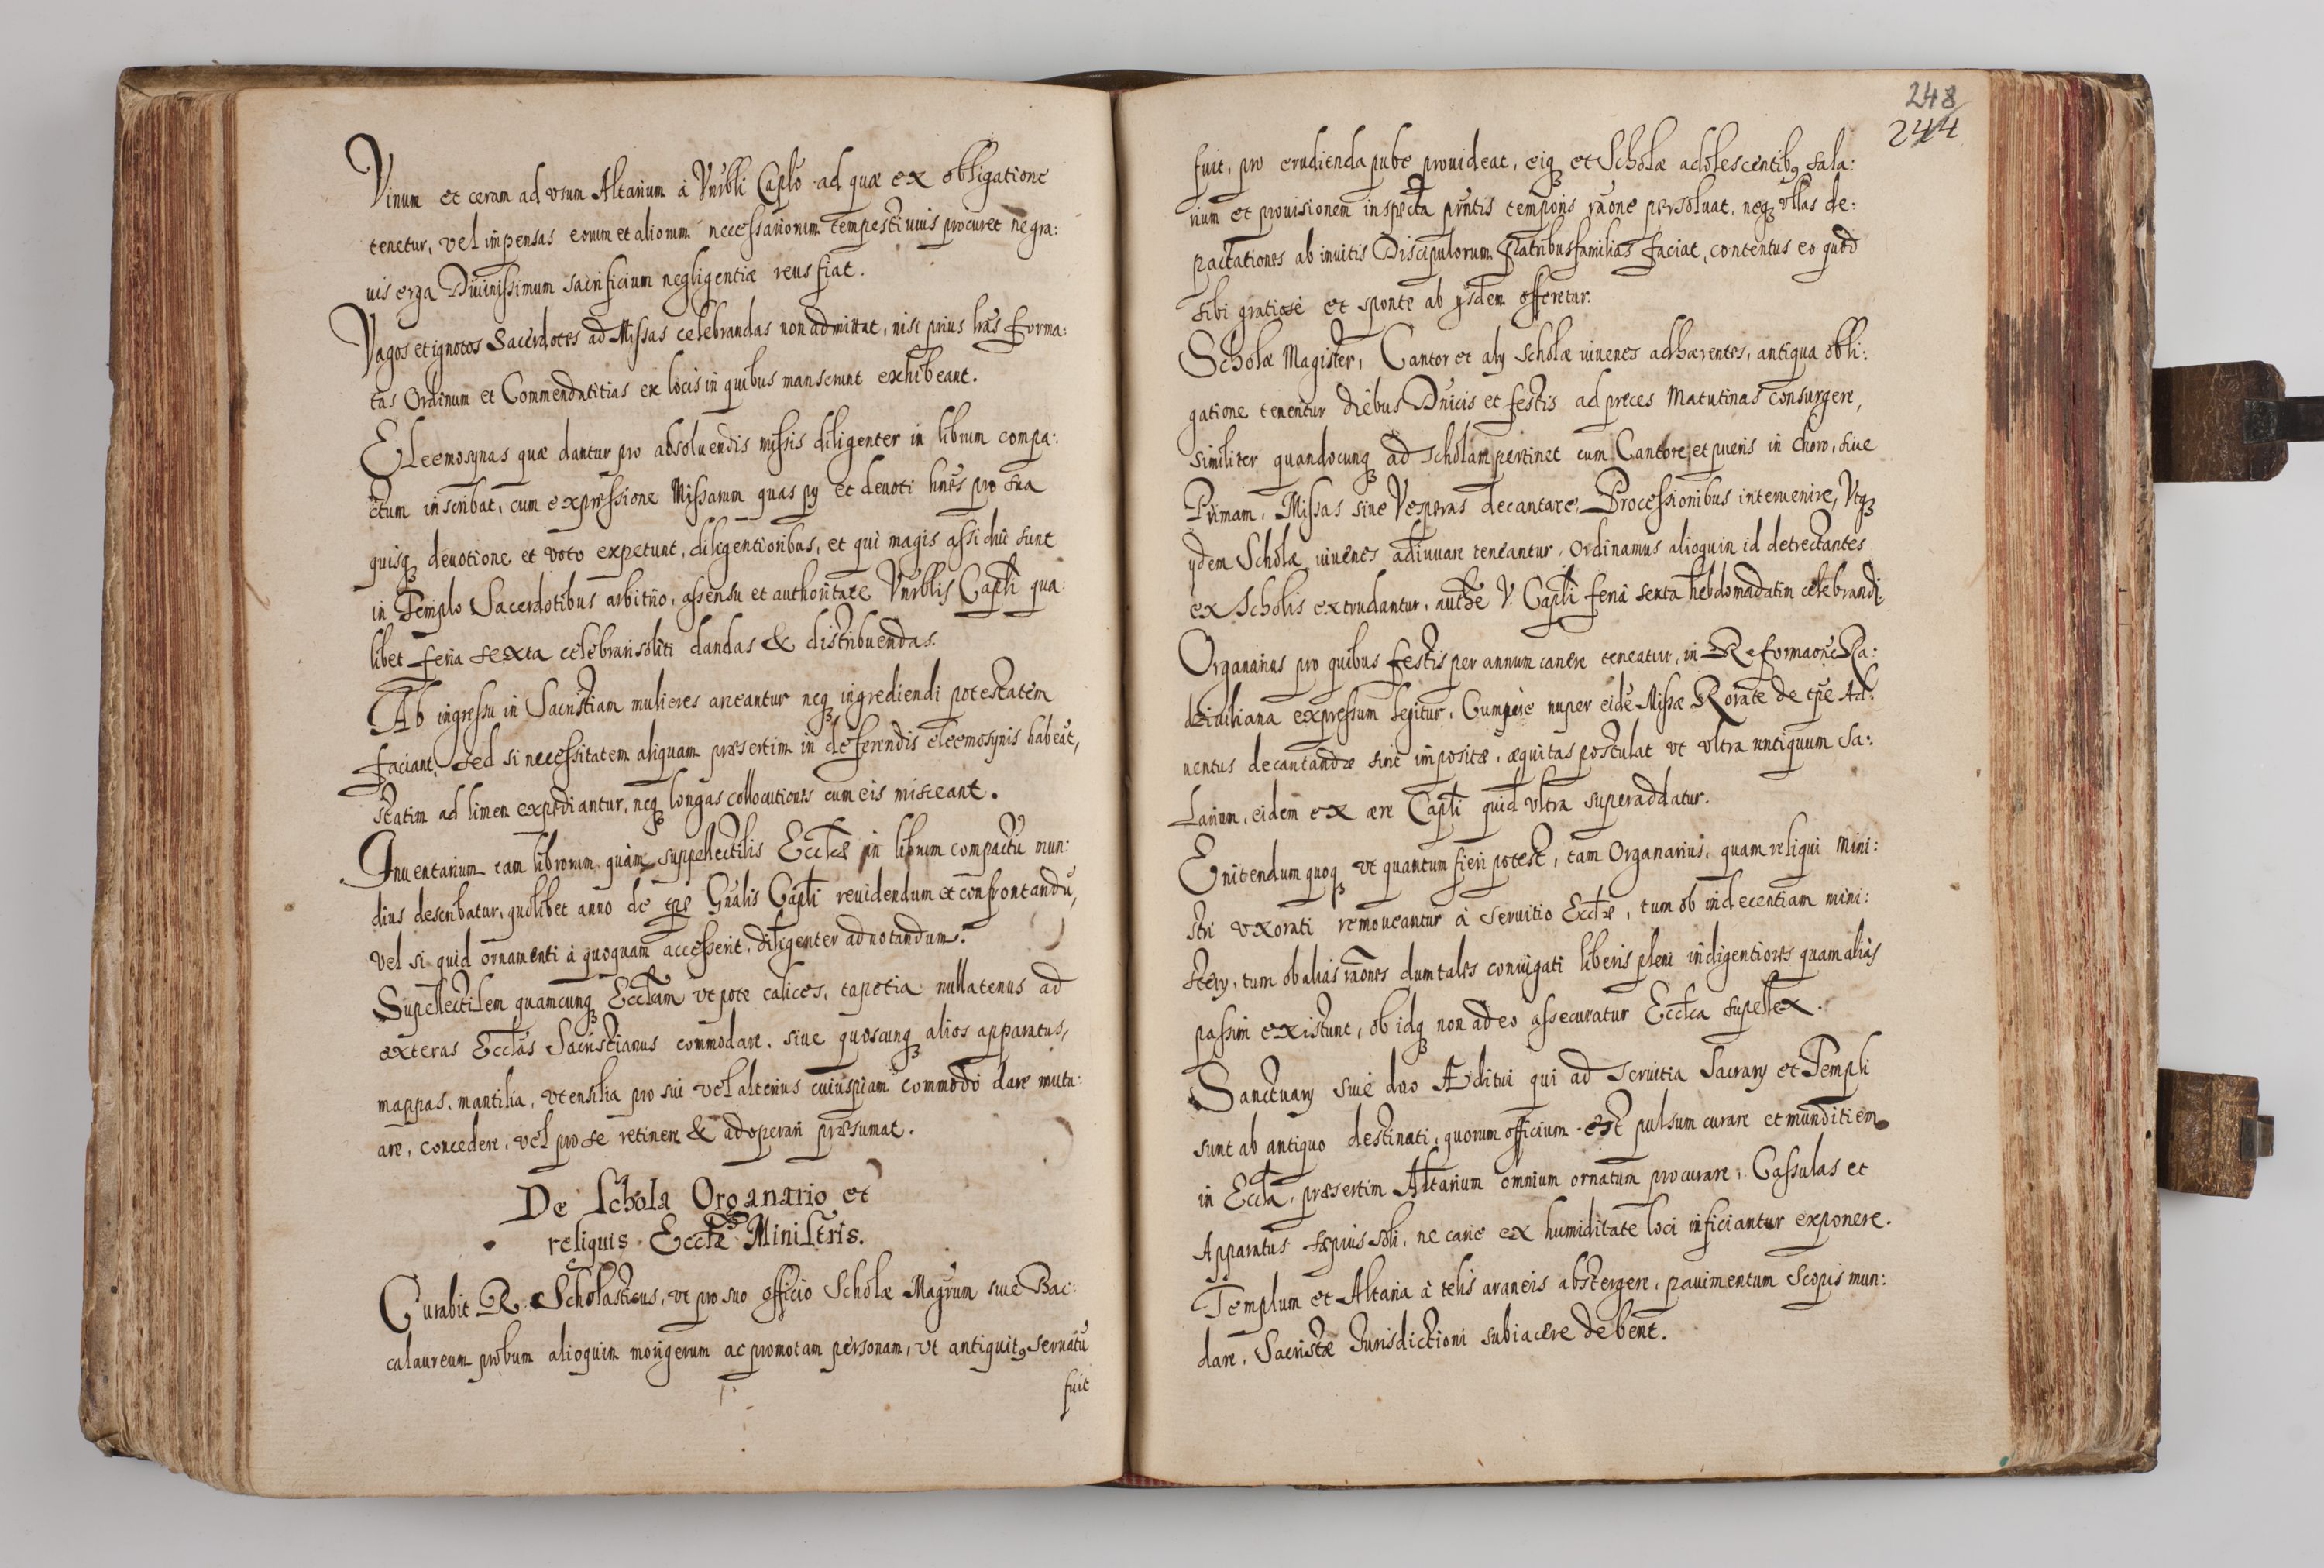 Vinum et ceram ad vsum Altarium à Vnrbli Caplo ad quæ ex obligatione
tenetur, vel impensas eorum et aliorum necessariorum tempestiuius procuret ne gra:
uis erga Diuinissimum sacrificium negligentiæ reus fiat.
Vagos et ignotos Sacerdotes ad Missas celebrandas non admittat, nisi prius lras forma:
tas Ordinum et Commendatitias ex locis in quibus manserunt exhibeant.
Eleemosynas quæ dantur pro absoluendis missis diligenter in librum compa:
ctum inscribat, cum expressione Missarum quas pij et deuoti hnes pro sua
quisq deuotione et voto expetunt, diligentioribus, et qui magis assidui sunt
in Templo Sacerdotibus arbitrio, assensu et authoritate Vnrblis Capli qua:
libet feria sexta celebrari soliti dandas & distribuendas.
Ab ingressu in Sacristiam mulieres arceantur neq ingrediendi potestatem
faciant, sed si necessitatem aliquam præsertim in deferendis eleemosynis habeāt,
statim ad limen expediantur, neq longas collocutiones cum eis misceant.
Inuentarium tam librorum quàm suppellectilis Eccłæ in librum compactū mun:
dius describatur, quolibet anno de tpe Gnalis Capli reuidendum et confrontandū,
vel si quid ornamenti à quoquam accesserit, diligenter adnotandum.
Supellectilem quamcunq Ecclam vt pote calices, tapetia nullatenus ad
exteras Ecclas Sacristianus commodare, siue quoscunq alios apparatus,
mappas, mantilia, vtensilia pro sui vel alterius cuiuspiam commodo dare mutu:
are, concedere, vel pro se retinere & ad operari præsumat.
De Schola Organario et
reliquis Eccłæ Ministris.
Curabit R. Scholasticus, vt pro suo officio Scholæ Magrum siue Bac:
calaureum probum alioquin morigerum ac promotam personam, vt antiquitꝯ seruatū
fuit
248
244
fuit, pro erudienda pube prouideat, eiq et Scholæ adolescentibꝯ sala:
rium et prouisionem inspecta prntis temporis raone persoluat, neq vllas de:
pactationes ab inuitis Discipulorum Patribusfamilias faciat, contentus eo quod
sibi gratiosè et sponte ab ijsdem offeretur.
Scholæ Magister, Cantor et alij scholæ iuuenes adhærentes, antiqua obli:
gatione tenentur diebus Dnicis et festis ad preces Matutinas consurgere,
similiter quandocunq ad scholam pertinet cum Cantore et pueris in choro, siue
Primam, Missas siue Vesperas decantare, Processionibus interuenire, Vtq
ijdem Scholæ iuuenes adiuuare teneantur, Ordinamus alioquin id detrectantes
ex Scholis extrudantur, authe V. Capli feria sexta hebdomadatim celebrandi.
Organarius pro quibus festis per annum canere teneatur, in Reformaone Ra:
dziuiliana expressum legitur, Cumque nuper eidē Missæ Rorate de tpe Ad:
uentus decantandæ sint impositæ, æquitas postulat vt vltra antiquum sa:
larium, eidem ex ære Capli quid vltra superaddatur.
Enitendum quoq vt quantum fieri potest, tam Organarius, quam reliqui mini:
stri vxorati remoueantur à seruitio Eccłæ, tum ob indecentiam mini:
sterij, tum ob alias raones dum tales coniugati liberis pleni indigentiores quam aliàs
passim existunt, ob idq non adeo assecuratur Eccłca supellex.
Sanctuarij siue duo Æditui qui ad seruitia Sacrarij et Templi
sunt ab antiquo destinati, quorum officium est pulsum curare et munditiem
in Eccła, præsertim Altarium omnium ornatum procurare, Cassulas et
Apparatus sæpius soli, ne carie ex humiditate loci inficiantur exponere.
Templum et Altaria à telis araneis abstergere, pauimentum scopis mun:
dare, Sacristæ Iurisdictioni subiacere debent.